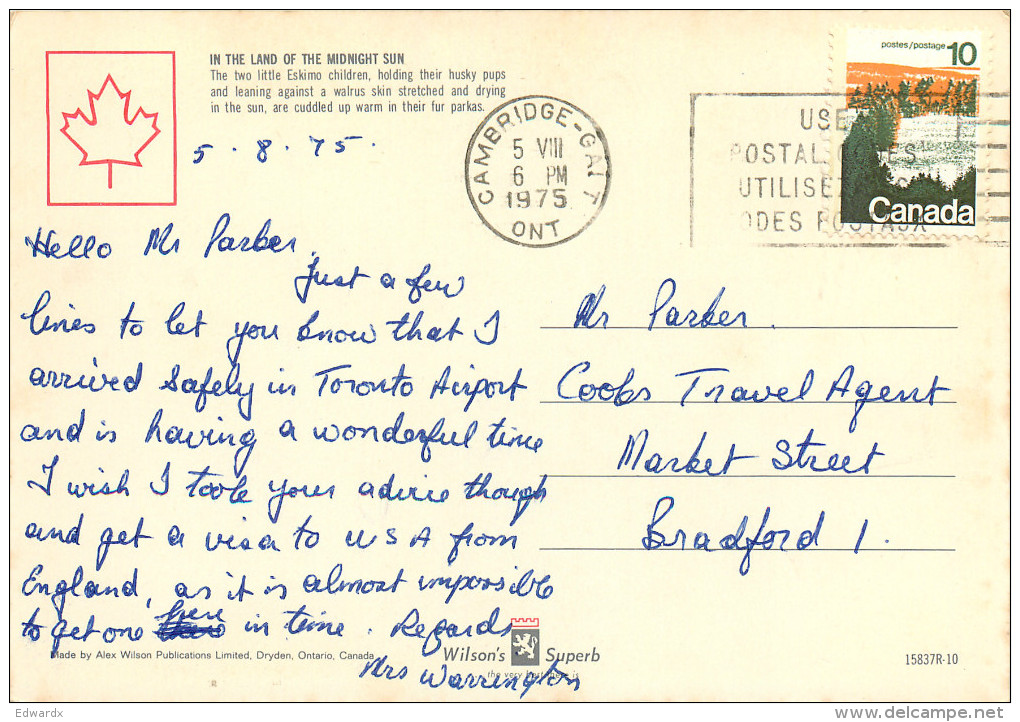 IN THE LAND OF THE MIDNIGHT SUN
The two little Eskimo children, holding their husky pups
and leaning against a walrus skin stretched and drying
in the sun, are cuddled up warm in their fur parkas.
5.8.75.
CAMBRIDGE-GALT
5 VIII
6 PM
1975
ONT
USE
POSTAL CODES
UTILISEZ
CODES POSTAUX
postes/postage 10
Canada
Hello Mr Parker.
Just a few
lines to let you know that I
arrived safely in Toronto Airport
and is having a wonderful time
I wish I took your advice though
and get a visa to USA from
England, as it is almost impossible
to get one here in time. Regards
Mrs Warrington
Mr Parker.
Cooks Travel Agent
Market Street
Bradford 1.
Made by Alex Wilson Publications Limited, Dryden, Ontario, Canada
Wilson's Superb
the very best there is
15837R-10
Edwardx
www.delcampe.net